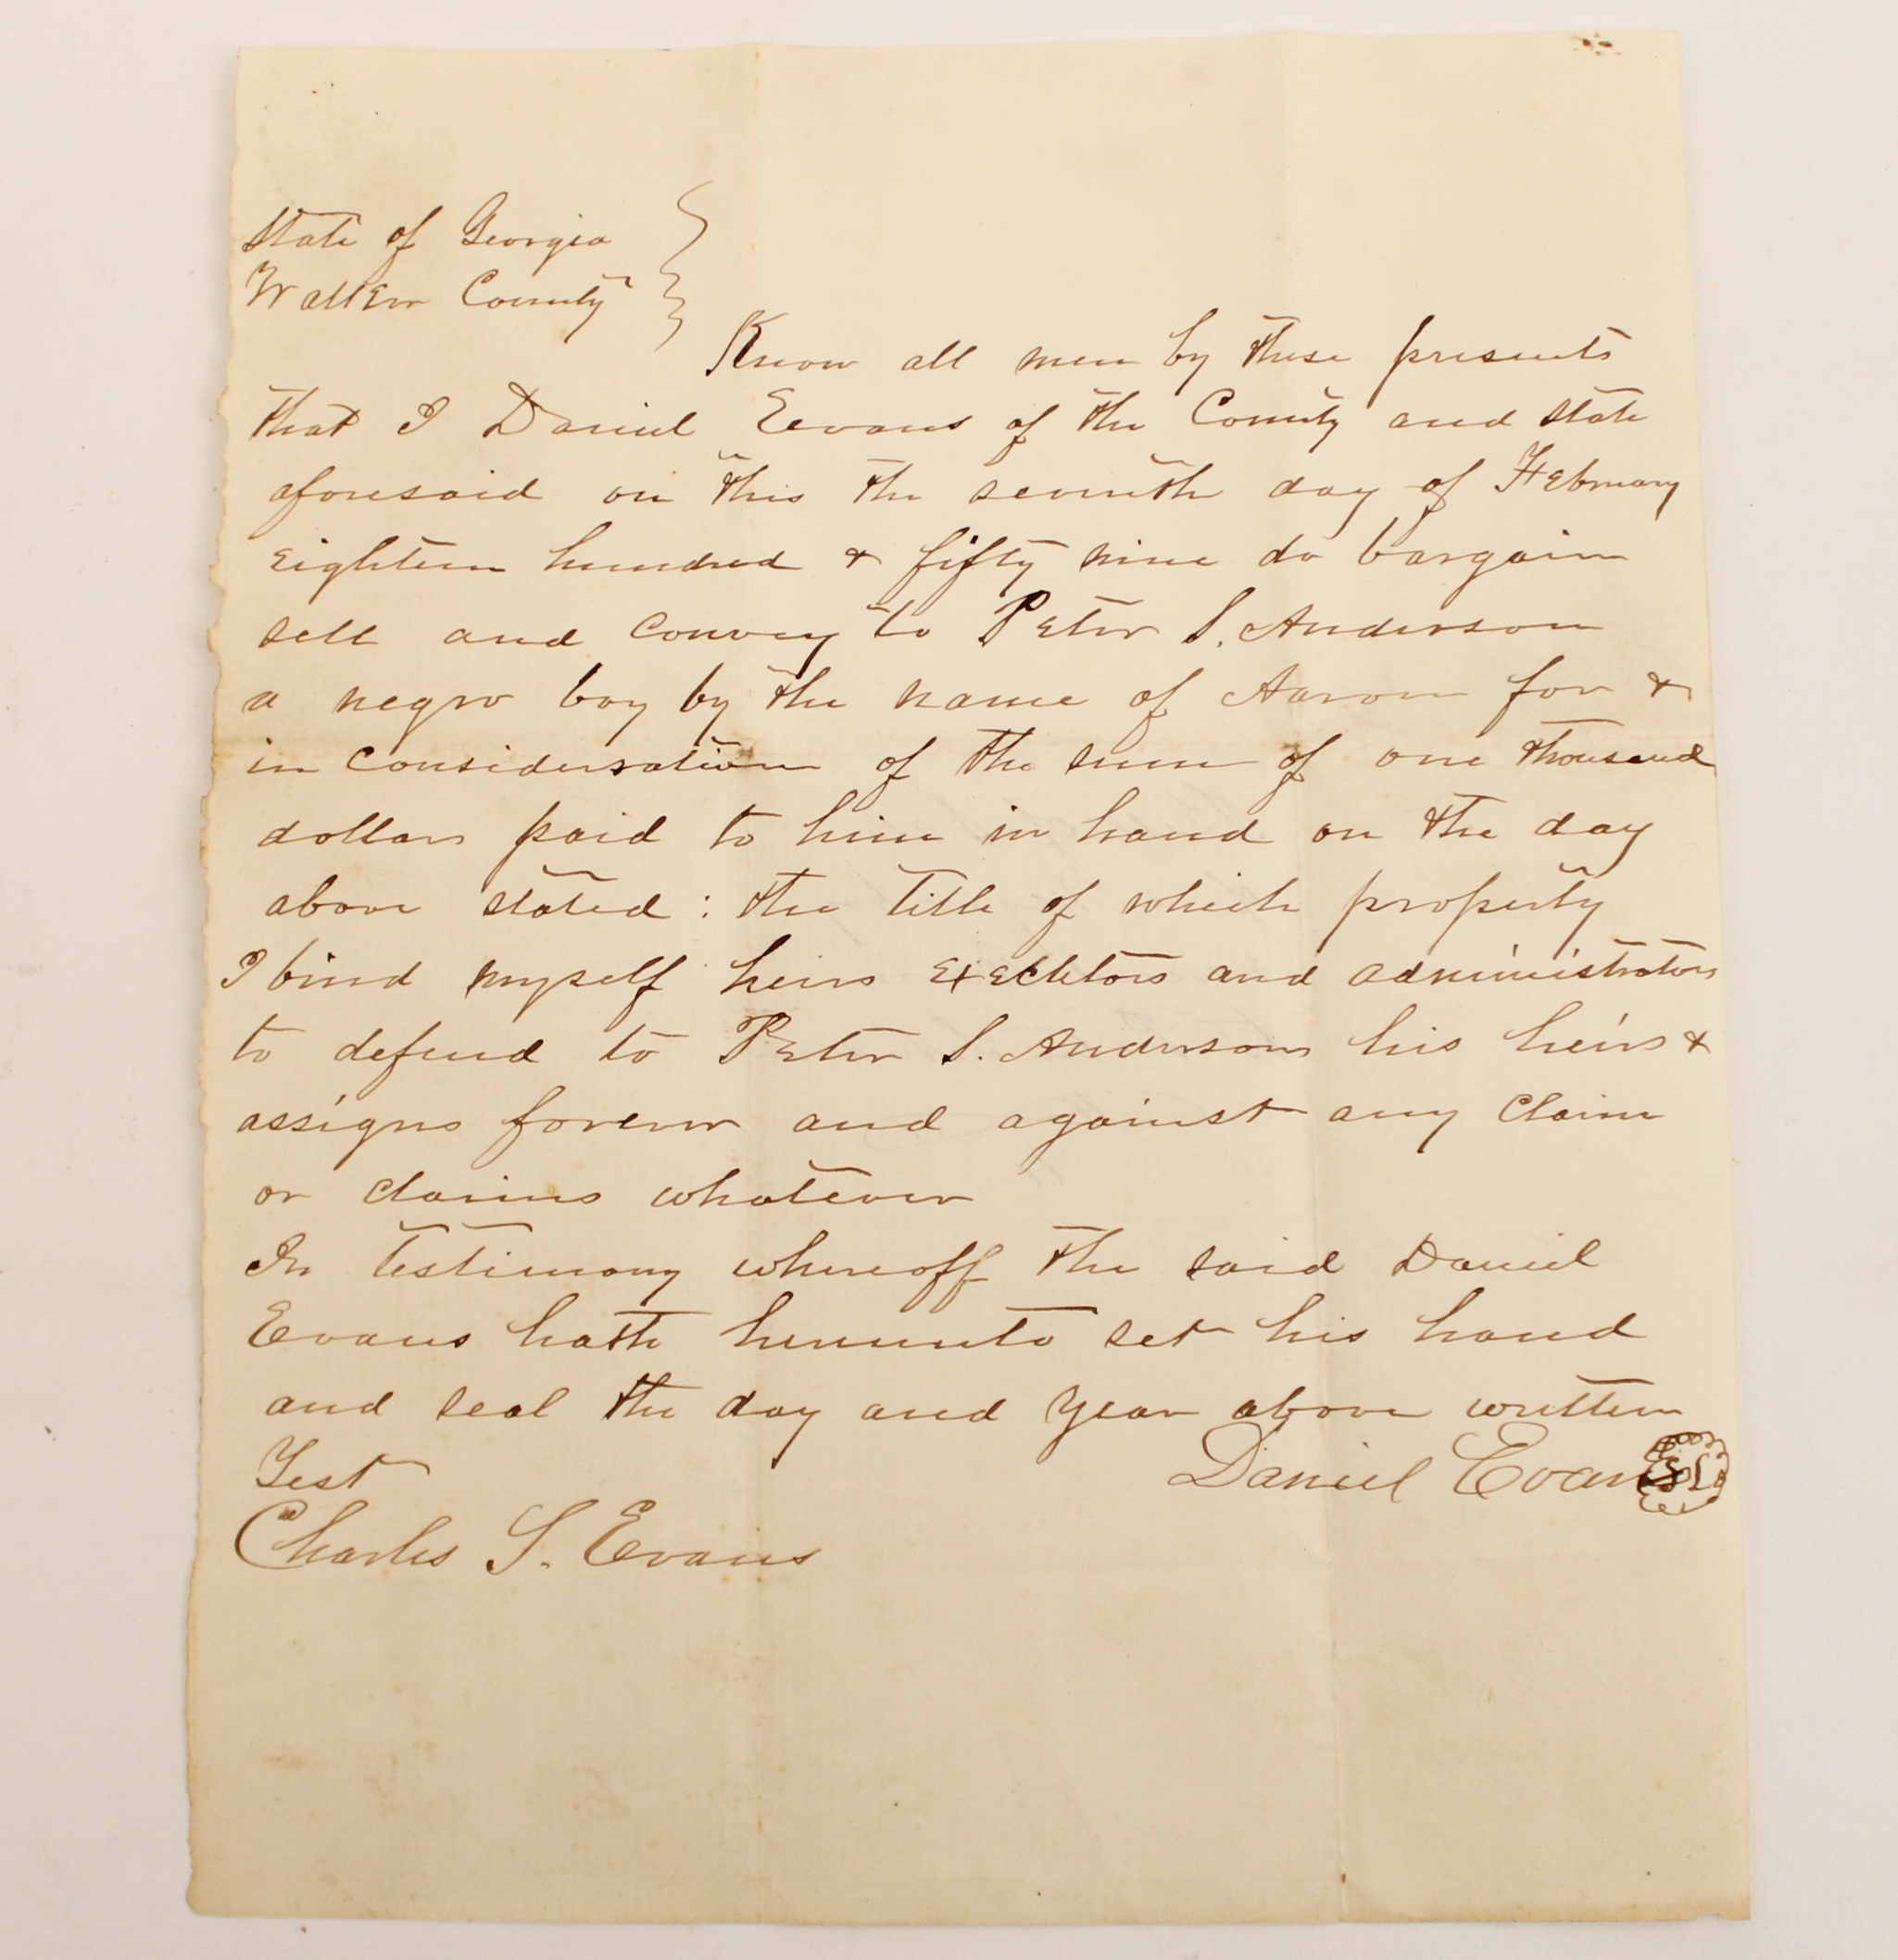 State of Georgia
Walker County
Know all men by these presents
that I Daniel Eevans of the County and State
aforesaid on this the seventh day of February
Eighteen hundred & fifty nine do bargain
sell and convey to Peter S. Anderson
a negro boy by the name of Aaron for &
in consideration of the sum of one thousand
dollars paid to him in hand on the day
above stated : the title of which property
I bind myself heirs Executors and administrators
to defend to Peter S. Anderson his heirs &
assigns forever and against any claim
or claims whatever
In testimony whereoff the said Daniel
Evans hath hereunto set his hand
and seal the day and year above written
Test
Daniel Evans
Charles S. Evans